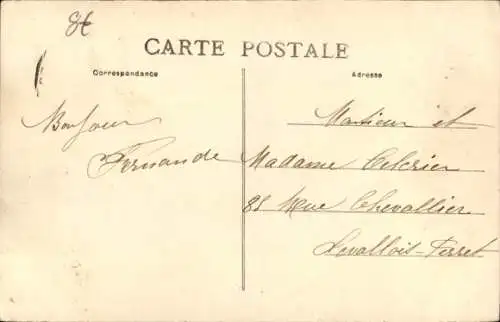 8€
CARTE POSTALE
Correspondance
Adresse
Bonjour
Fernande
Monsieur et
Madame
85 Rue Chevallier
Levallois-Perret